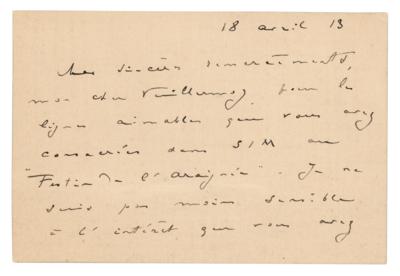 18 avril 13
Mes sincères remerciements,
mon cher Vuillermoz, pour les
lignes aimables que vous avez
consacrées dans SIM au
"Festin de l'Araignée". Je ne
suis pas moins sensible
à l'intérêt que vous avez